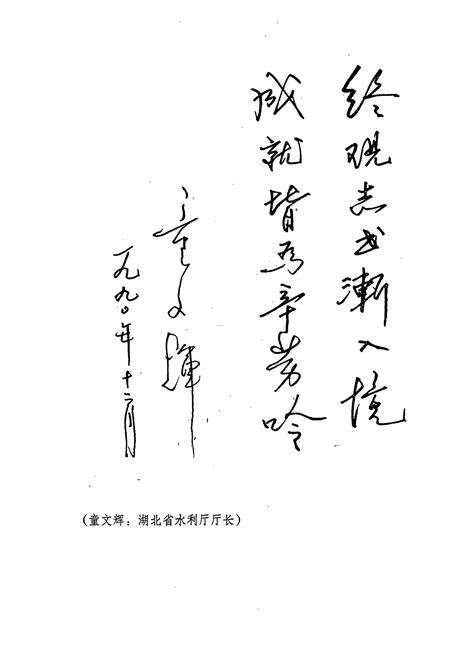 终观志书渐入境
成就皆为辛劳吟
童文辉
一九九〇年十二月
(童文辉：湖北省水利厅厅长)